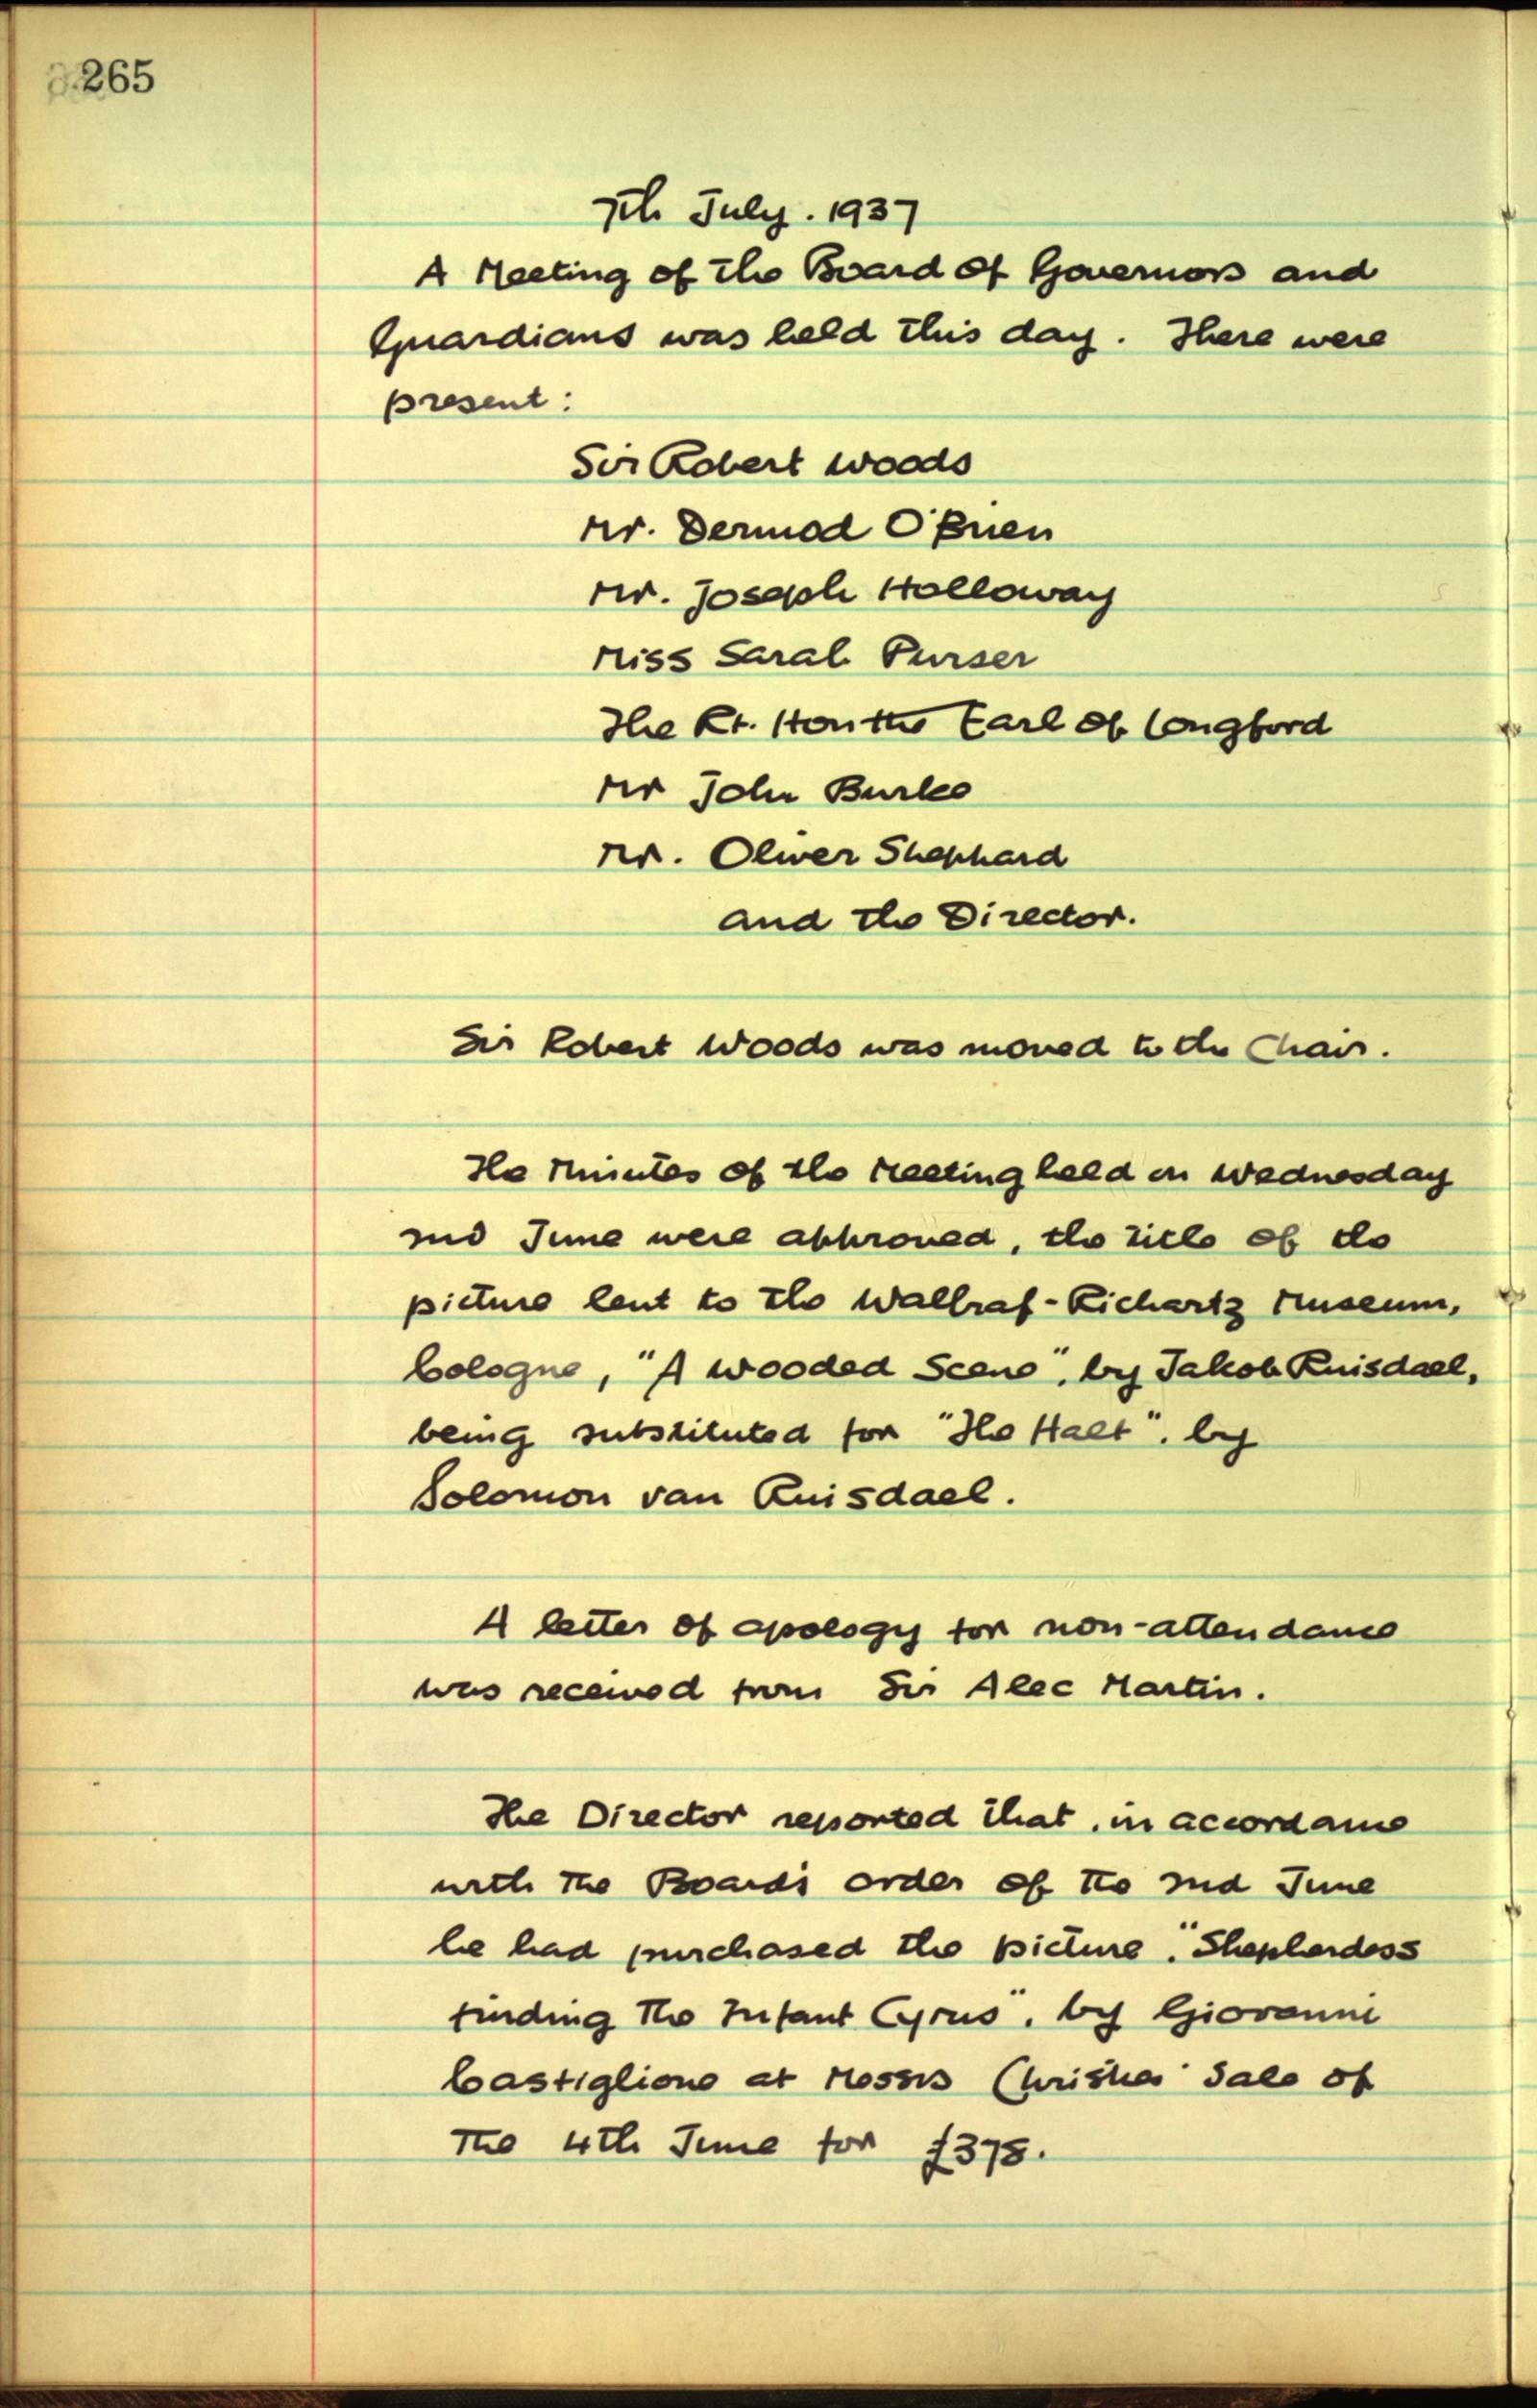 265
7th July. 1937
A Meeting of the Board of Governors and
Guardians was held this day. There were
present:
Sir Robert Woods
Mr. Dermod O'Brien
Mr. Joseph Holloway
Miss Sarah Purser
The Rt. Hon the Earl of Longford
Mr John Burke
Mr. Oliver Shephard
and the Director.
Sir Robert Woods was moved to the Chair.
The Minutes of the Meeting held on Wednesday
2nd June were approved, the title of the
picture lent to the Wallraf-Richartz Museum,
Cologne, "A Wooded Scene", by Jakob Ruisdael,
being substituted for "The Halt", by
Solomon van Ruisdael.
A letter of apology for non-attendance
was received from Sir Alec Martin.
The Director reported that, in accordance
with the Board's order of the 2nd June
he had purchased the picture, "Shepherdess
finding the Infant Cyrus", by Giovanni
Castiglione at Messrs Christies' Sale of
the 4th June for £378.